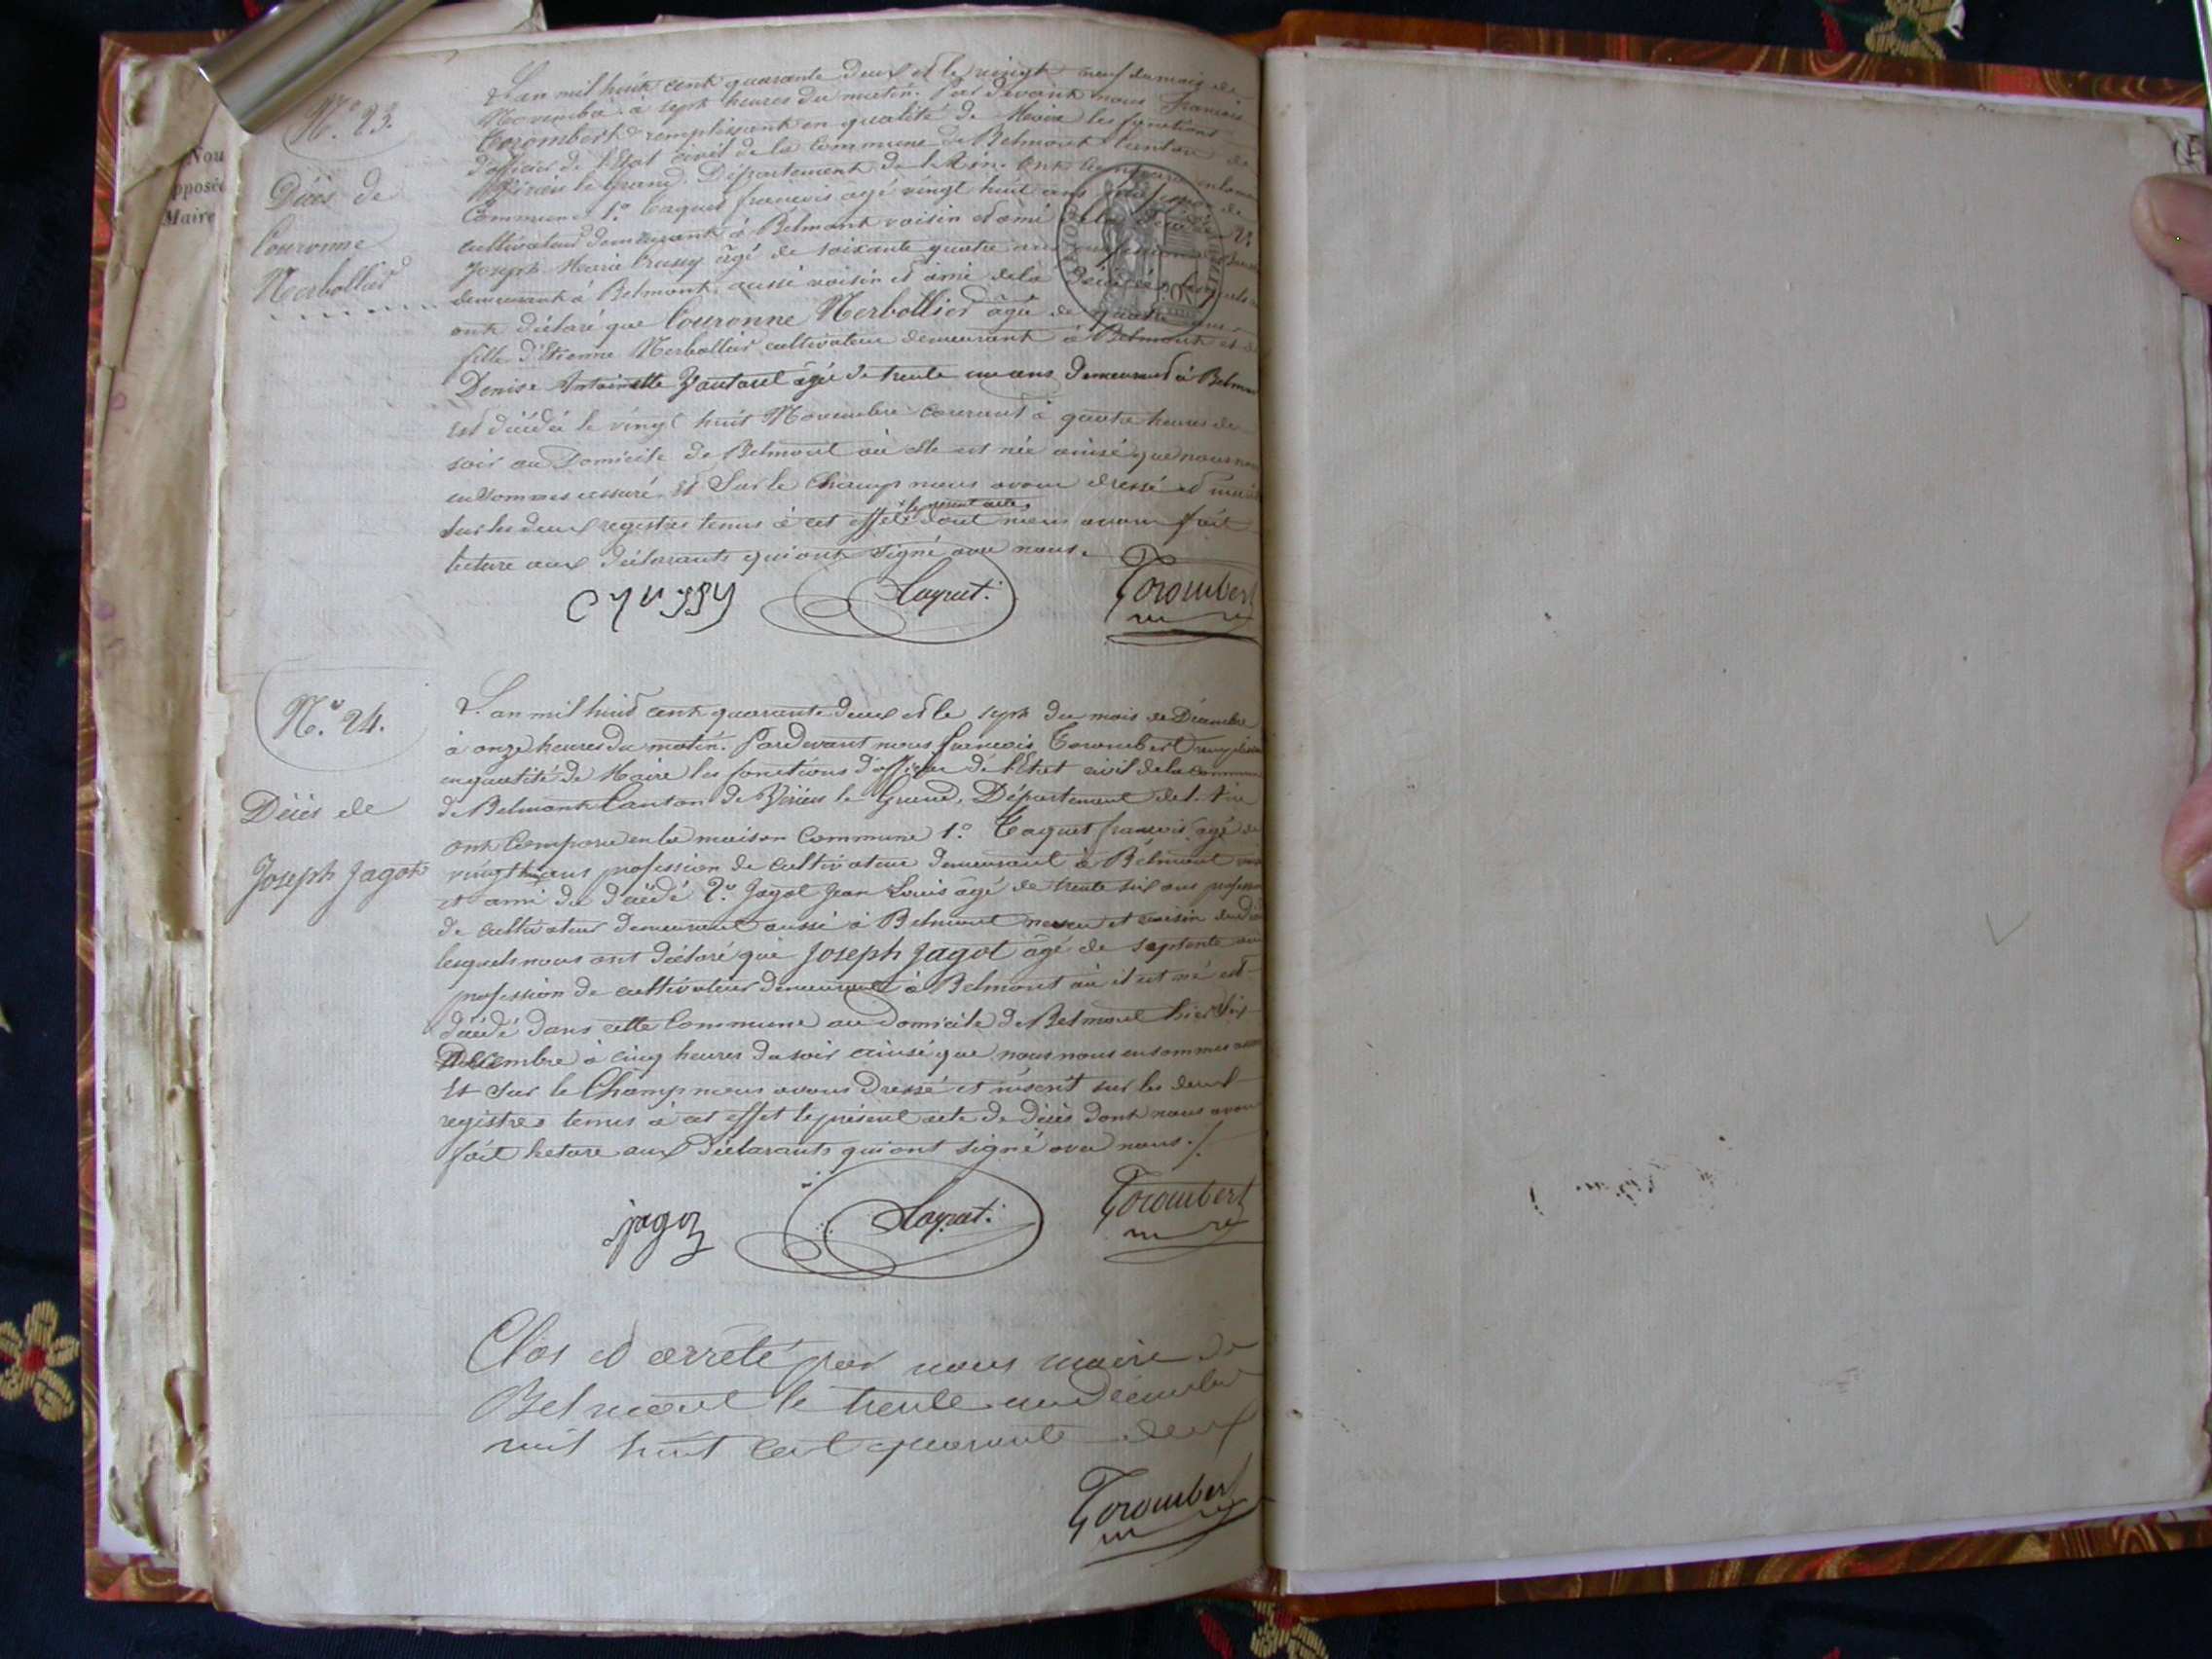 Nou
pposée
Maire
N.º 23.
Décès de
Couronne
Nerbollier
L'an mil huit cent quarante deux et le vingt neuf du mois de
Novembre à sept heures du matin. Par devant nous François
Corombert remplissant en qualité de Maire les fonctions
d'officier de l'Etat civil de la Commune de Belmont Canton de
Virieu le Grand, Département de l'Ain. Ont comparu en la maison
Commune 1.º Caquet françois agé vingt huit ans profession de
cultivateur demeurant à Belmont voisin et ami de la décédée 2º
Joseph Marie âgé de soixante quatre ans profession
demeurant à Belmont, aussi voisin et ami de la Décédée, lesquels
ont déclaré que Couronne Nerbollier âgée de quatre ans
fille d'Etienne Nerbollier cultivateur demeurant à Belmont et de
Denise Antoinette âgée de trente un ans demeurant à Belmont
est décédée le vingt huit Novembre courant à quatre heures de
soir au domicile de Belmont où elle est née ainsi que nous nous
en sommes assuré. Et Sur le Champ nous avons dressé et inscrit
sur les deux registres tenus à cet effet le présent acte dont nous avons fait
lecture aux déclarants qui ont signé avec nous.
Corombert
N.º 24.
Décès de
Joseph Jagot
L'an mil huit cent quarante deux et le sept du mois de Décembre
à onze heures du matin. Pardevant nous François Corombert remplissant
en qualité de Maire les fonctions d'officier de l'Etat civil de la Commune
de Belmont Canton de Virieu le Grand, Département de l'Ain
ont Comparu en la maison Commune 1.º Caquet françois agé de
vingt huit ans profession de cultivateur demeurant à Belmont voisin
et ami du décédé 2.º Jagot Jean Louis âgé de trente six ans profession
de cultivateur demeurant aussi à Belmont neveu et voisin du décédé
lesquels nous ont déclaré que Joseph Jagot âgé de septante ans
profession de cultivateur demeurant à Belmont où il est né est
décédé dans cette Commune au domicile de Belmont hier six
Décembre à cinq heures du soir ainsi que nous nous en sommes assuré
Et Sur le Champ nous avons dressé et inscrit sur les deux
registres tenus à cet effet le présent acte de décès dont nous avons
fait lecture aux Déclarants qui ont signé avec nous.
jagoz
Corombert
Clos et arrêté par nous maire de
Belmont le trente un décembre
mil huit cent quarante deux
Corombert